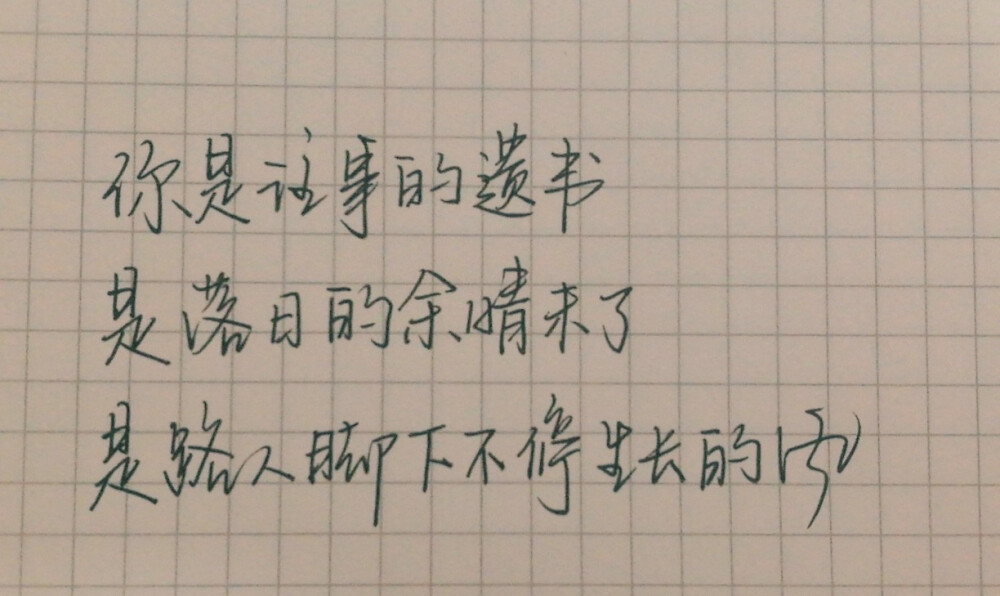 你是往事的遗书
是落日的余晴未了
是路人脚下不停生长的